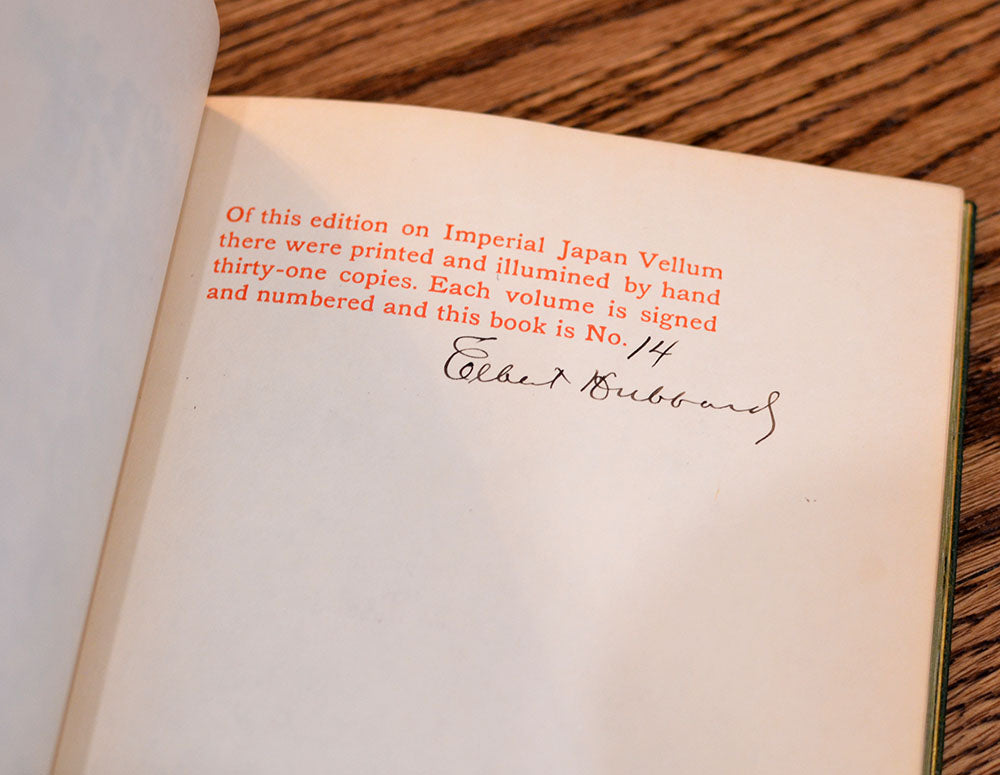 Of this edition on Imperial Japan Vellum
there were printed and illumined by hand
thirty-one copies. Each volume is signed
and numbered and this book is No. 14
Elbert Hubbard